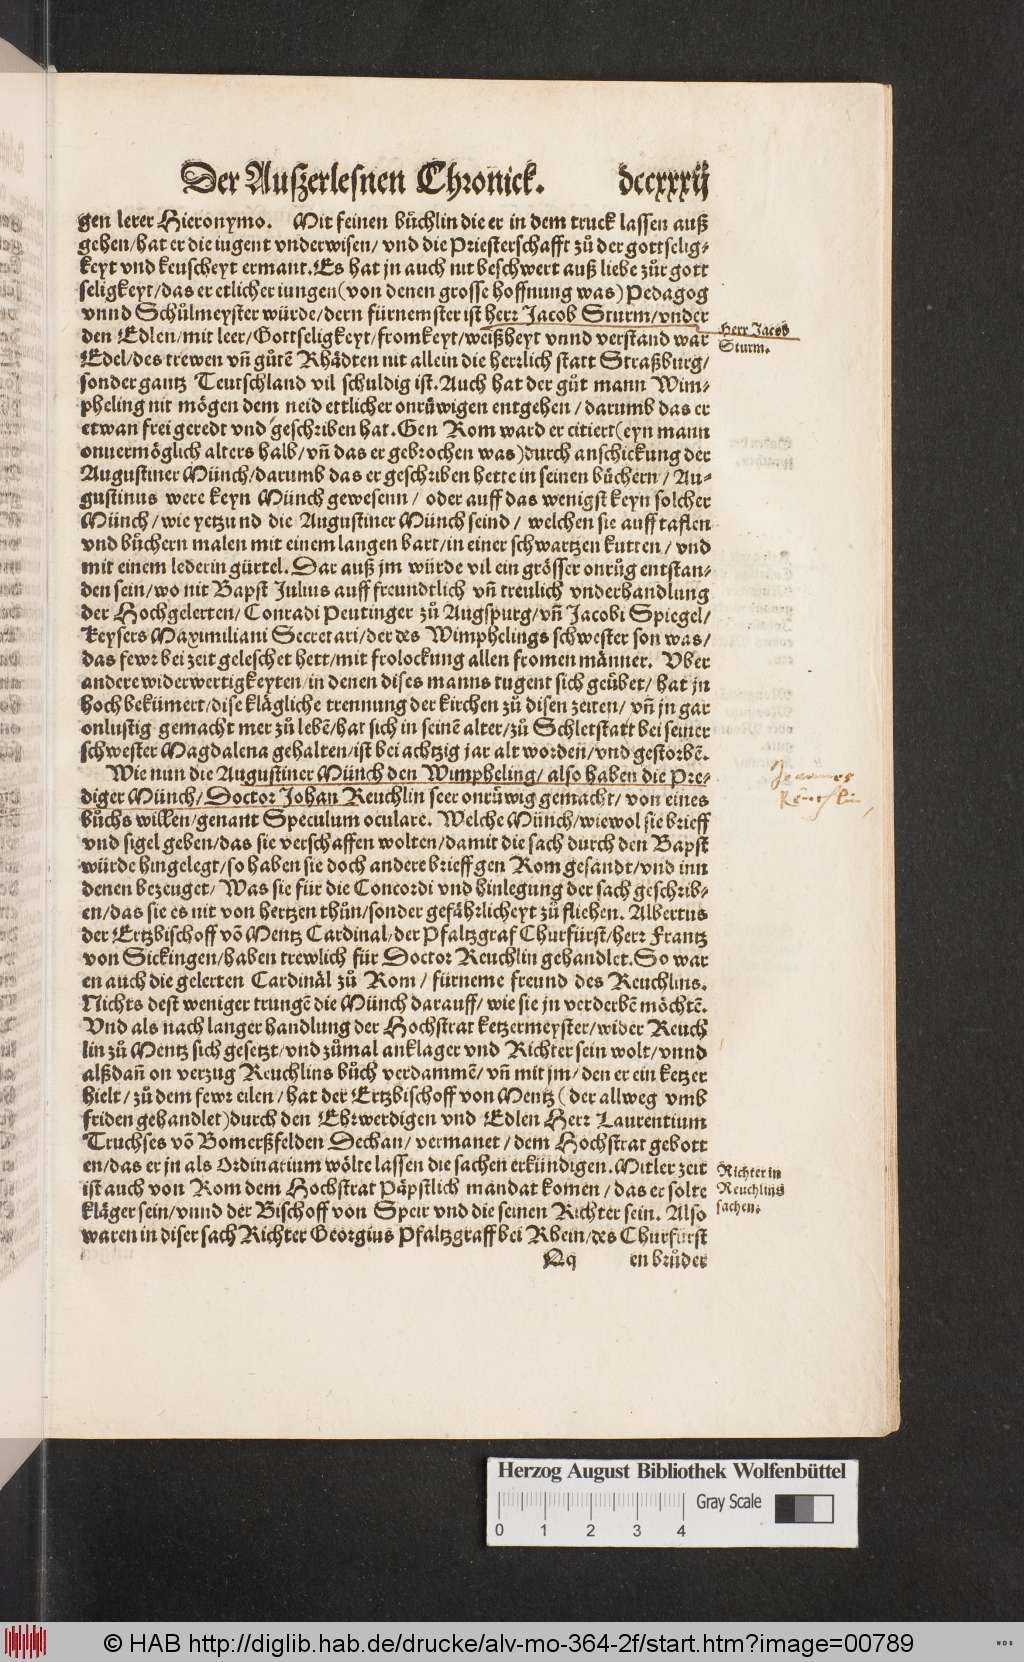 Der Außerlesnen Chronick. dccxxxij
gen lerer Hieronymo. Mit seinen bůchlin die er in dem truck lassen auß
gehen/ hat er die iugent vnderwisen/ vnd die Priesterschafft zů der gottselig⸗
keyt vnd keuscheyt ermant. Es hat jn auch nit beschwert auß liebe zůr gott
seligkeyt/ das er etlicher iungen (von denen grosse hoffnung was) Pedagog
vnnd Schůlmeyster würde/ dern fürnemster ist herr Jacob Sturm/ vnder
den Edlen/ mit leer/ Gottseligkeyt/ fromkeyt/ weißheyt vnnd verstand war
Herr Jacob
Sturm.
Edel/ des trewen vñ gůtē Rhädten nit allein die herrlich statt Straßburg/
sonder gantz Teutschland vil schuldig ist. Auch hat der gůt mann Wim⸗
pheling nit mögen dem neid ettlicher onrüwigen entgehen/ darumb das er
etwan frei geredt vnd geschriben hat. Gen Rom ward er citiert (eyn mann
onuermöglich alters halb/ vñ das er gebrochen was) durch anschickung der
Augustiner Münch/ darumb das er geschriben hette in seinen bůchern/ Au⸗
gustinus were keyn Münch gewesenn/ oder auff das wenigst keyn solcher
Münch/ wie yetzund die Augustiner Münch seind/ welchen sie auff taflen
vnd bůchern malen mit einem langen bart/ in einer schwartzen kutten/ vnd
mit einem lederin gürtel. Dar auß jm würde vil ein grösser onrůg entstan⸗
den sein/ wo nit Bapst Julius auff freundtlich vñ treulich vnderhandlung
der Hochgelerten/ Conradi Peutinger zů Augspurg/ vñ Jacobi Spiegel/
Keysers Maximiliani Secretari/ der des Wimphelings schwester son was/
das fewr bei zeit geleschet hett/ mit frolockung allen fromen männer. Vber
andere widerwertigkeyten/ in denen dises manns tugent sich geübet/ hat jn
hoch bekümert/ dise klägliche trennung der kirchen zů disen zeiten/ vñ jn gar
onlustig gemacht mer zů lebē/ hat sich in seinē alter/ zů Schletstatt bei seiner
schwester Magdalena gehalten/ ist bei achtzig jar alt worden/ vnd gestorbē.
Wie nun die Augustiner Münch den Wimpheling/ also haben die Pre⸗
diger Münch/ Doctor Johan Reuchlin seer onrüwig gemacht/ von eines
Joannes
Reuchlin
bůchs willen/ genant Speculum oculare. Welche Münch/ wiewol sie brieff
vnd sigel geben/ das sie verschaffen wolten/ damit die sach durch den Bapst
würde hingelegt/ so haben sie doch andere brieff gen Rom gesandt/ vnd inn
denen bezeuget/ Was sie für die Concordi vnd hinlegung der sach geschrib⸗
en/ das sie es nit von hertzen thůn/ sonder gefährlicheyt zů fliehen. Albertus
der Ertzbischoff vō Mentz Cardinal/ der Pfaltzgraf Churfürst/ herr Frantz
von Sickingen/ haben trewlich für Doctor Reuchlin gehandlet. So war
en auch die gelerten Cardinäl zů Rom/ fürneme freund des Reuchlins.
Nichts dest weniger trungē die Münch darauff/ wie sie jn verderbē möchtē.
Vnd als nach langer handlung der Hochstrat ketzermeyster/ wider Reuch
lin zů Mentz sich gesetzt/ vnd zůmal anklager vnd Richter sein wolt/ vnnd
alßdañ on verzug Reuchlins bůch verdammē/ vñ mit jm/ den er ein ketzer
hielt/ zů dem fewr eilen/ hat der Ertzbischoff von Mentz (der allweg vmb
friden gehandlet) durch den Ehrwerdigen vnd Edlen Herr Laurentium
Truchses vō Bomerßfelden Dechan/ vermanet/ dem Hochstrat gebott
en/ das er jn als Ordinarium wölte lassen die sachen erkündigen. Mitler zeit
Richter in
Reuchlins
sachen.
ist auch von Rom dem Hochstrat Päpstlich mandat komen/ das er solte
kläger sein/ vnnd der Bischoff von Speir vnd die seinen Richter sein. Also
waren in diser sach Richter Georgius Pfaltzgraff bei Rhein/ des Churfürst
Qq en brůder
Herzog August Bibliothek Wolfenbüttel
Gray Scale
0 1 2 3 4
© HAB http://diglib.hab.de/drucke/alv-mo-364-2f/start.htm?image=00789